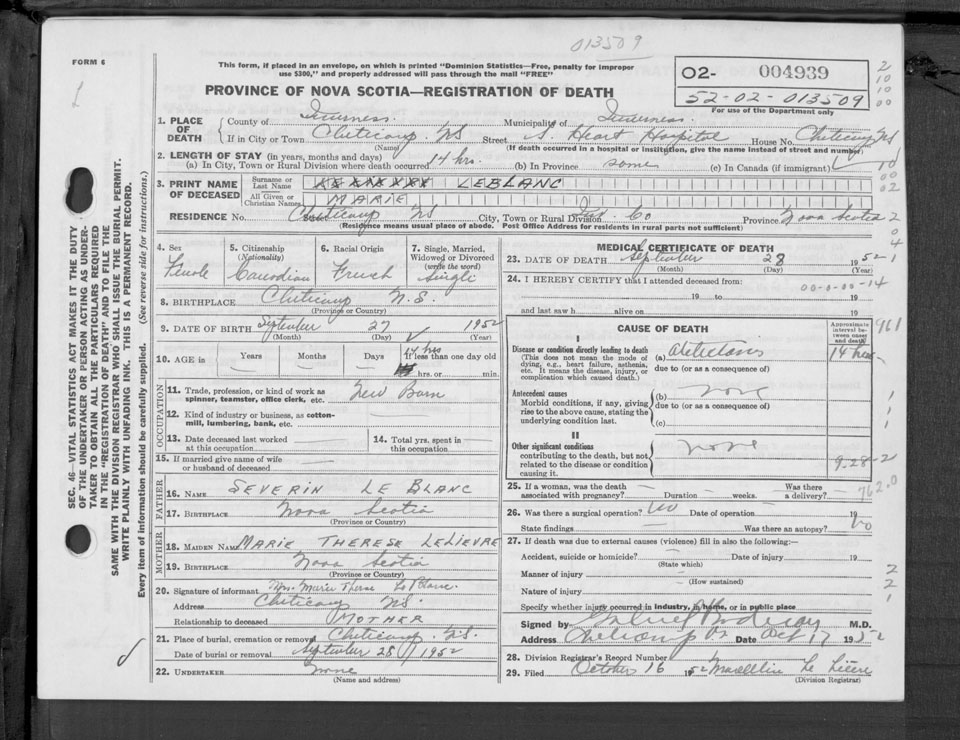 013509
FORM 6
This form, if placed in an envelope, on which is printed "Dominion Statistics—Free, penalty for improper
use $300," and properly addressed will pass through the mail "FREE"
O2- 004939
52-02-013509
For use of the Department only
2
10
10
00
PROVINCE OF NOVA SCOTIA—REGISTRATION OF DEATH
1. PLACE OF DEATH
County of Inverness Municipality of Inverness
If in City or Town Cheticamp. NS Street S. Heart Hospital House No. Cheticamp NS
(Name) (If death occurred in a hospital or institution, give the name instead of street and number)
2. LENGTH OF STAY (in years, months and days)
(a) In City, Town or Rural Division where death occurred 14 hrs. (b) In Province same (c) In Canada (if immigrant)
3. PRINT NAME OF DECEASED
Surname or Last Name LEBLANC
All Given or Christian Names MARIE
RESIDENCE No. Cheticamp NS City, Town or Rural Division Inv. Co Province Nova Scotia
(Residence means usual place of abode. Post Office Address for residents in rural parts not sufficient)
4. Sex Female
5. Citizenship (Nationality) Canadian
6. Racial Origin French
7. Single, Married, Widowed or Divorced (write the word) Single
8. BIRTHPLACE Cheticamp N.S.
(Province or Country)
9. DATE OF BIRTH September 27 1952
(Month) (Day) (Year)
10. AGE in Years Months Days 14 hrs If less than one day old
hrs. or min.
OCCUPATION
11. Trade, profession, or kind of work as
spinner, teamster, office clerk, etc. New Born
12. Kind of industry or business, as cotton-
mill, lumbering, bank, etc. —
13. Date deceased last worked
at this occupation —
14. Total yrs. spent in
this occupation —
15. If married give name of wife
or husband of deceased —
FATHER
16. NAME SEVERIN LE BLANC
17. BIRTHPLACE Nova Scotia
(Province or Country)
MOTHER
18. MAIDEN NAME MARIE THERESE LELIEVRE
19. BIRTHPLACE Nova Scotia
(Province or Country)
20. Signature of informant Mrs. Marie Therese Le Blanc
Address Cheticamp NS.
Relationship to deceased MOTHER
21. Place of burial, cremation or removal Cheticamp NS.
Date of burial or removal September 28 / 1952
22. UNDERTAKER None
(Name and address)
MEDICAL CERTIFICATE OF DEATH
23. DATE OF DEATH September 28 1952
(Month) (Day)
24. I HEREBY CERTIFY that I attended deceased from:
00-0-00-14
19 to 19
and last saw h alive on 19
CAUSE OF DEATH
Approximate interval between onset and death
961
I
Disease or condition directly leading to death
(This does not mean the mode of
dying, e.g., heart failure, asthenia,
etc. It means the disease, injury, or
complication which caused death.)
(a) Atelectasis 14 hrs
due to (or as a consequence of)
Antecedent causes
Morbid conditions, if any, giving
rise to the above cause, stating the
underlying condition last.
(b) none
due to (or as a consequence of)
(c)
II
Other significant conditions
contributing to the death, but not
related to the disease or condition
causing it.
none
9-28-2
762.0
25. If a woman, was the death
associated with pregnancy? — Duration — weeks. Was there
a delivery? —
26. Was there a surgical operation? no Date of operation — 19
State findings — Was there an autopsy? no
27. If death was due to external causes (violence) fill in also the following:—
Accident, suicide or homicide? — Date of injury 19
(State which)
Manner of injury —
(How sustained)
Nature of injury —
Specify whether injury occurred in industry, in home, or in public place
Signed by M.D.
Address Cheticamp NS Date Oct 17 1952
28. Division Registrar's Record Number 1
29. Filed October 16 1952 Marcellin Le Lièvre
(Division Registrar)
SEC. 46—VITAL STATISTICS ACT MAKES IT THE DUTY
OF THE UNDERTAKER OR PERSON ACTING AS UNDER-
TAKER TO OBTAIN ALL THE PARTICULARS REQUIRED
IN THE "REGISTRATION OF DEATH" AND TO FILE THE
SAME WITH THE DIVISION REGISTRAR WHO SHALL ISSUE THE BURIAL PERMIT.
WRITE PLAINLY WITH UNFADING INK. THIS IS A PERMANENT RECORD.
Every item of information should be carefully supplied. (See reverse side for instructions.)